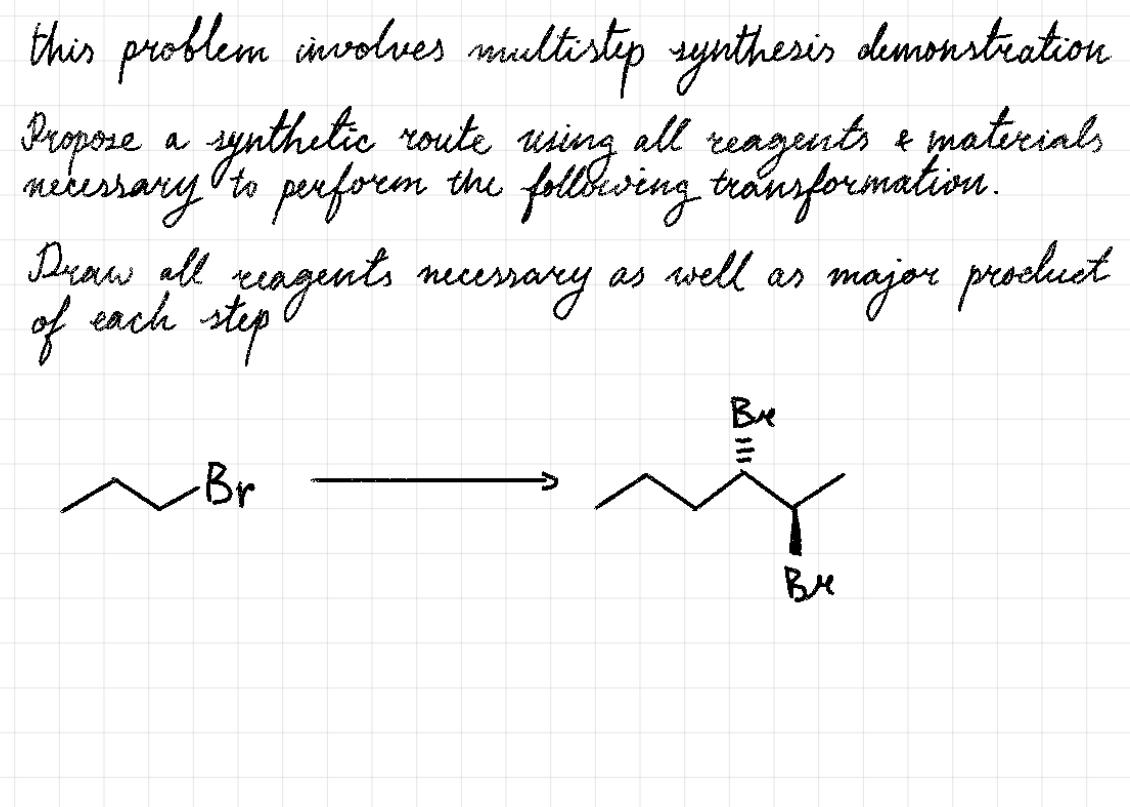 this problem involves multistep synthesis demonstration
Propose a synthetic route using all reagents & materials
necessary to perform the following transformation.
Draw all reagents necessary as well as major product
of each step
Br
Br
Br